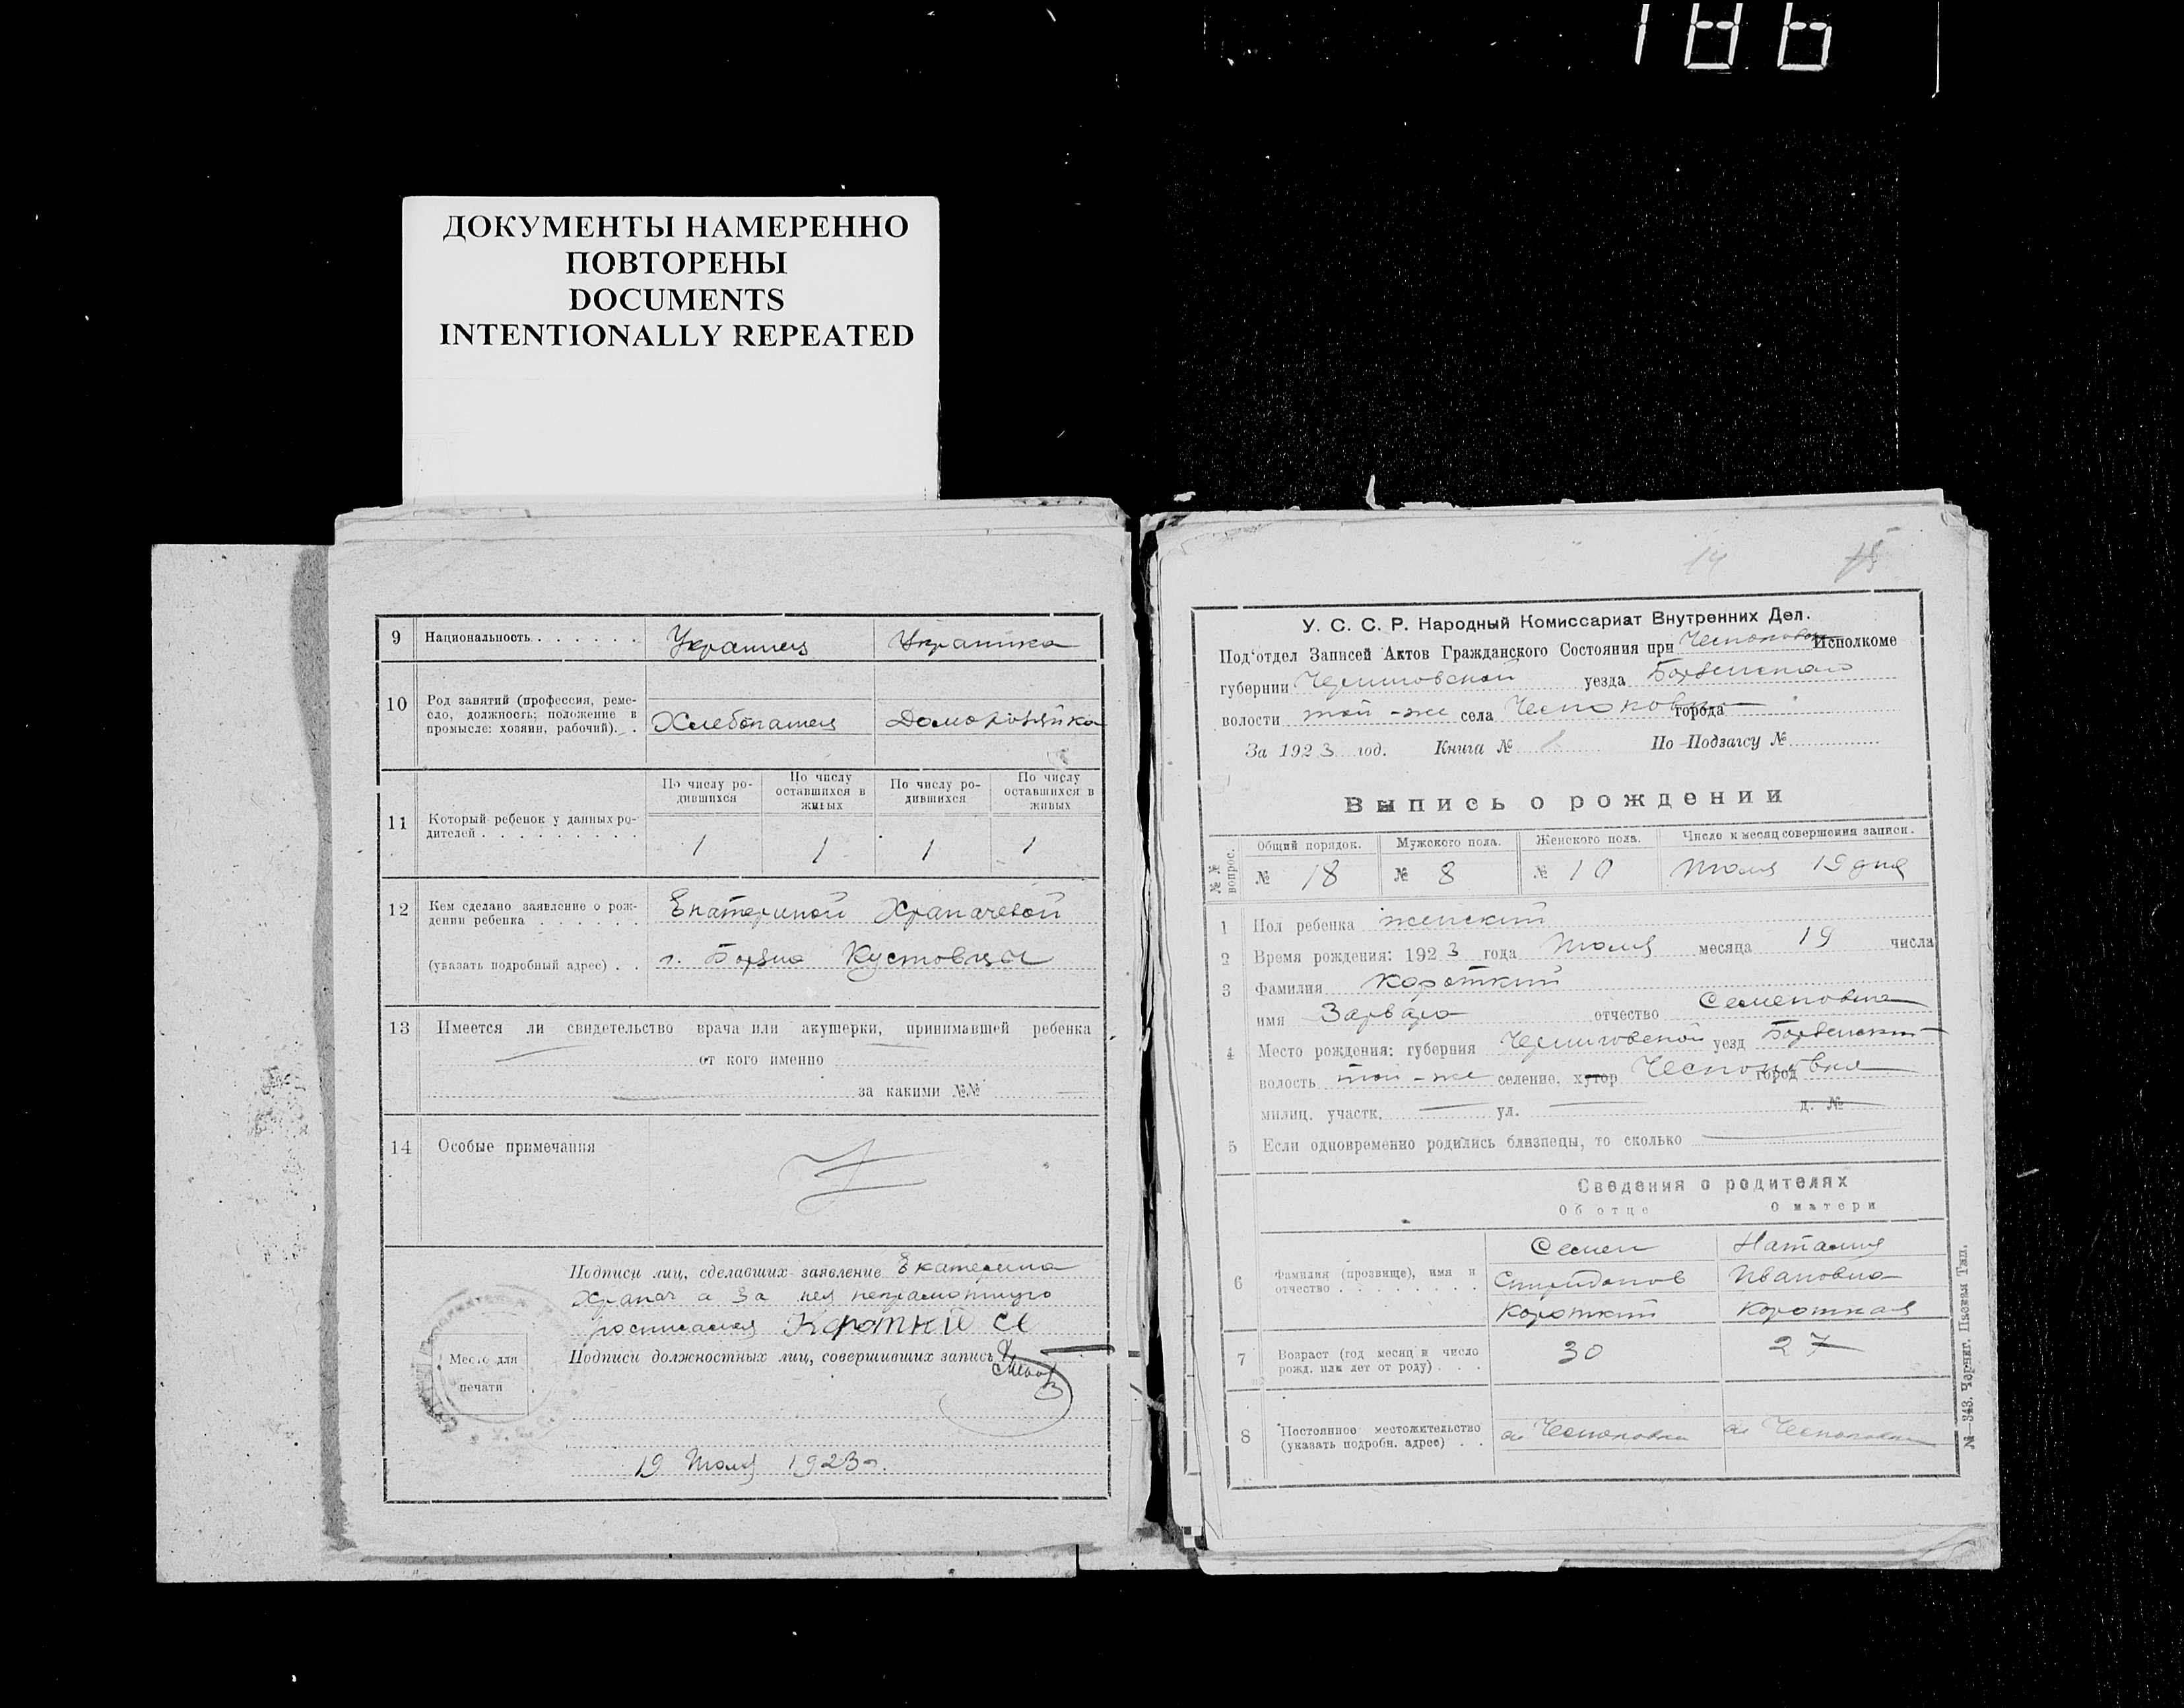 186
ДОКУМЕНТЫ НАМЕРЕННО
ПОВТОРЕНЫ
DOCUMENTS
INTENTIONALLY REPEATED
9 Национальность . . . . . . Украинец Украинка
10 Род занятий (профессия, реме-
сло, должность; положение в
промысле: хозяин, рабочий). . Хлебопашец Домохозяйка
По числу ро-
дившихся По числу
оставшихся в
живых По числу ро-
дившихся По числу
оставшихся в
живых
11 Который ребенок у данных ро-
дителей . . . . . . . . . 1 1 1 1
12 Кем сделано заявление о рож-
дении ребенка . . . . . . Екатериной Храпачевой
(указать подробный адрес) . . г. Борзна Кустовцы
13 Имеется ли свидетельство врача или акушерки, принимавшей ребенка
от кого именно
за какими №№
14 Особые примечания
Подписи лиц, сделавших заявление Екатерина
Храпач а за нея неграмотную
росписался Короткий С
Подписи должностных лиц, совершивших запись
Место для
печати
19 Июля 1923 г.
14 15
У. С. С. Р. Народный Комиссариат Внутренних Дел.
Под'отдел Записей Актов Гражданского Состояния при Исполкоме
губернии Черниговской уезда Борзенского
волости той-же села города
За 1923 год. Книга № По Подзагсу №
Выпись о рождении
№№ вопрос. Общий порядок. Мужского пола. Женского пола. Число и месяц совершения записи.
№ 18 № 8 № 10 Июля 19 дня
1 Пол ребенка женский
2 Время рождения: 1923 года Июля месяца 19 числа
3 Фамилия Короткий
имя Варвара отчество Семеновна
4 Место рождения: губерния Черниговской уезд Борзенский
волость той-же селение, хутор город
милиц. участк. ул. д. №
5 Если одновременно родились близнецы, то сколько
Сведения о родителях
Об отце О матери
6 Фамилия (прозвище), имя и
отчество . . . . . . . .
Семен Наталия
Спиридонов Ивановна
Короткий Короткая
7 Возраст (год месяц и число
рожд. или лет от роду) . . . 30 27
8 Постоянное местожительство
(указать подробн. адрес) . .
№—343. Черниг. Паевая Тип.